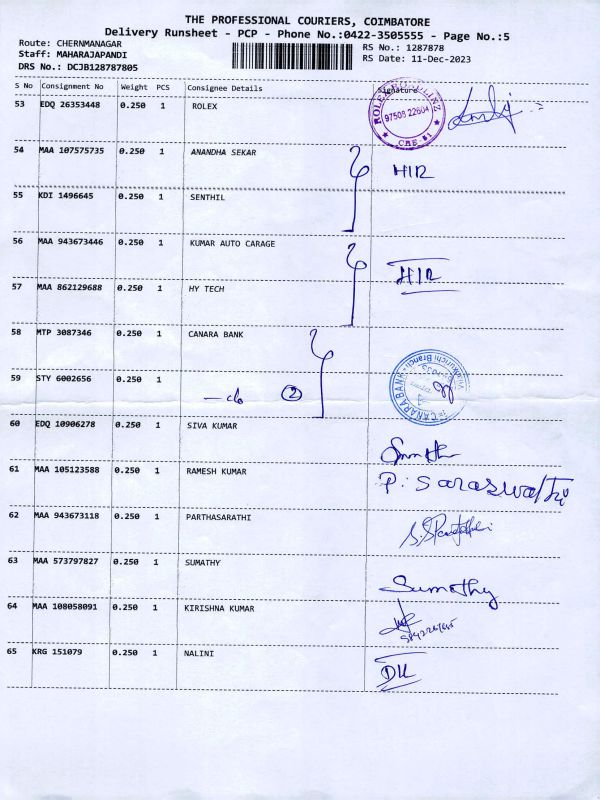 THE PROFESSIONAL COURIERS, COIMBATORE
Delivery Runsheet - PCP - Phone No.:0422-3505555 - Page No.:5
Route: CHERNMANAGAR
RS No.: 1287878
Staff: MAHARAJAPANDI
RS Date: 11-Dec-2023
DRS No.: DCJB128787805
S No Consignment No Weight PCS Consignee Details Signature
53 EDQ 26353448 0.250 1 ROLEX
97509 22604
CBE
54 MAA 107575735 0.250 1 ANANDHA SEKAR
HIR
55 KDI 1496645 0.250 1 SENTHIL
56 MAA 943673446 0.250 1 KUMAR AUTO CARAGE
HIR
57 MAA 862129688 0.250 1 HY TECH
58 MTP 3087346 0.250 1 CANARA BANK
CANARA BANK
Branch
59 STY 6002656 0.250 1
2
60 EDQ 10906278 0.250 1 SIVA KUMAR
61 MAA 105123588 0.250 1 RAMESH KUMAR
P. Saraswathi
62 MAA 943673118 0.250 1 PARTHASARATHI
63 MAA 573797827 0.250 1 SUMATHY
Sumathy
64 MAA 108058091 0.250 1 KIRISHNA KUMAR
65 KRG 151079 0.250 1 NALINI